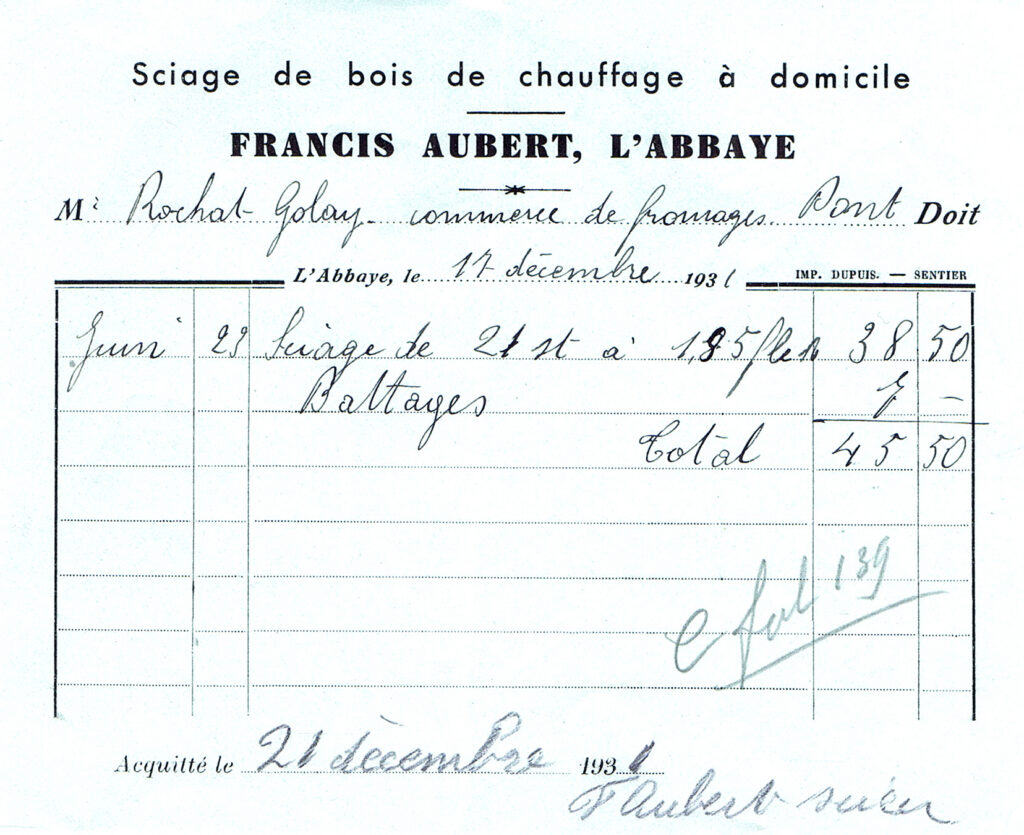 Sciage de bois de chauffage à domicile
FRANCIS AUBERT, L'ABBAYE
Mr Rochat-Golay. commerce de fromages. Pont Doit
L'Abbaye, le 17 décembre 1931
IMP. DUPUIS. — SENTIER
Juin 23 Sciage de 21 st à 1,85 38 50
Battages 7 -
Total 45 50
C fol 139
Acquitté le 21 décembre 1931
F Aubert scieur